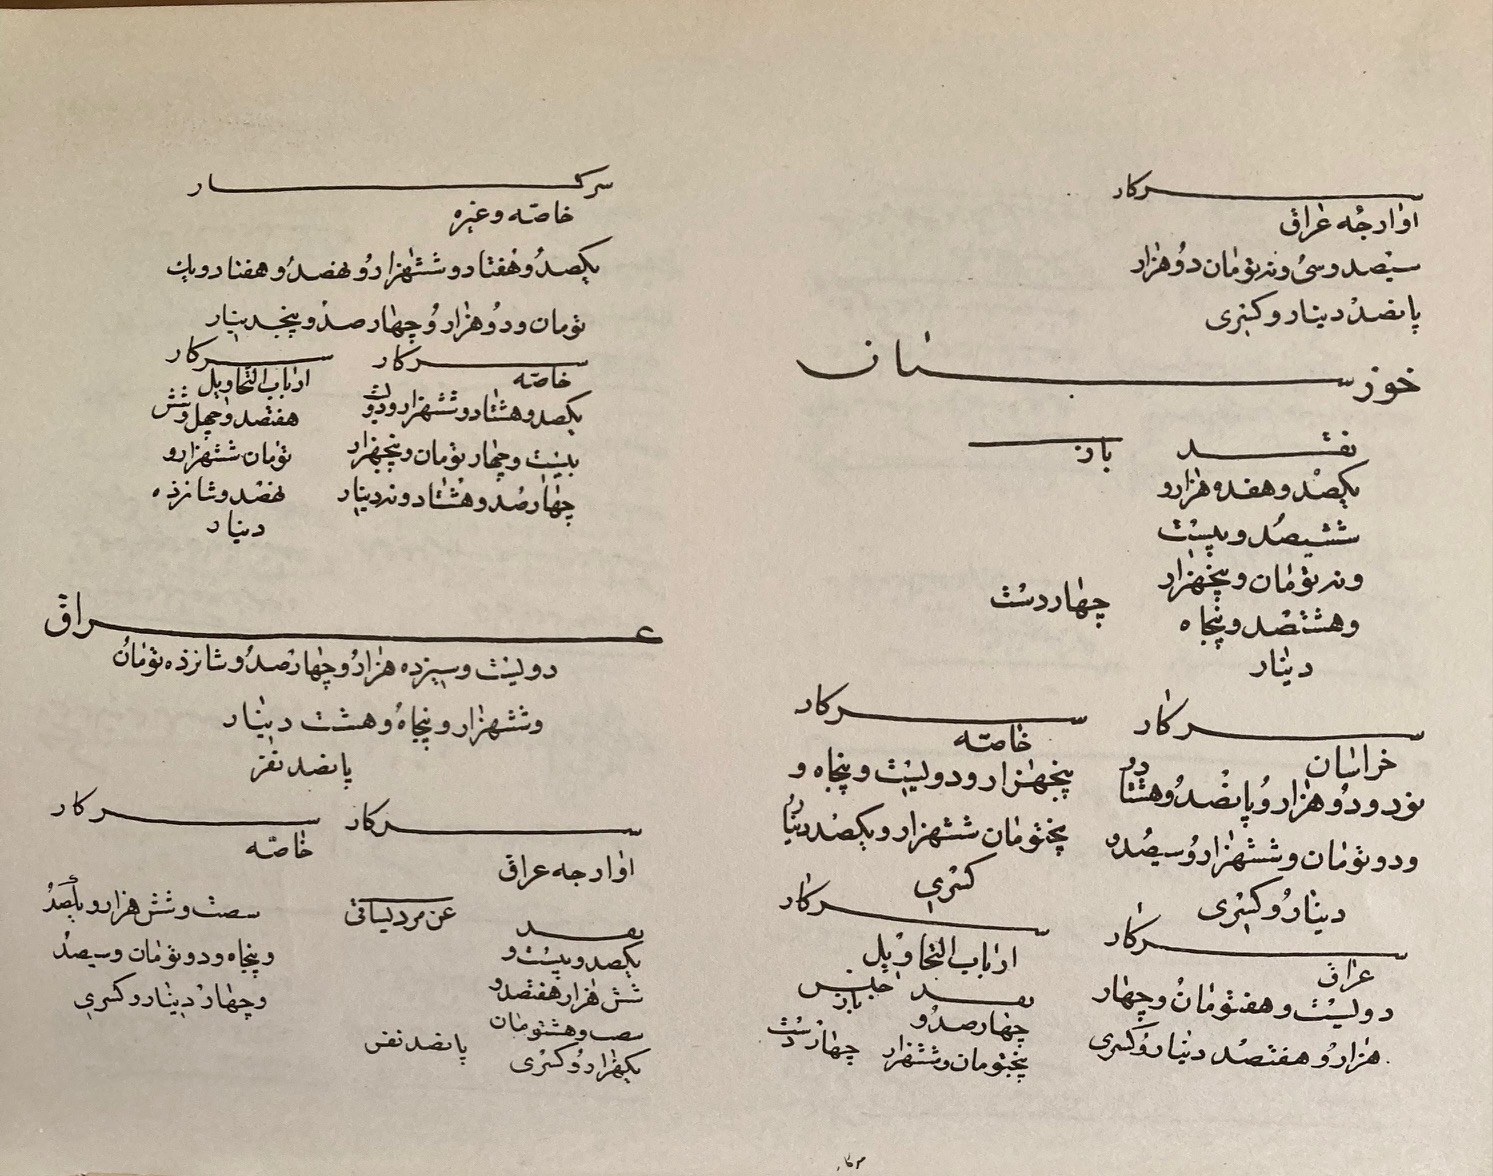 سرکار
اوارجه عراق
سیصد و سی و نه تومان دو هزار
پانصد دینار و کسری
خوزستان
نقد
یکصد و هفده هزار و
ششصد و بیست
و نه تومان و پنجهزار
و هشتصد و پنجاه
دینار
باز
چهار دست
سرکار
خراسان
نود و دو هزار و پانصد و هشتاد
و دو تومان و ششهزار و سیصد و
دینار و کسری
سرکار
خاصه
پنجهزار و دویست و پنجاه و
پنج تومان ششهزار و یکصد دینار
کسری
سرکار
عراق
دویست و هفت تومان و چهار
هزار و هفتصد دینار و کسری
سرکار
ارباب التحاویل
نقد
چهارصد و
پنجتومان و ششهزار
جنس
باز
چهار دست
سرکار
خاصه و غیره
یکصد و هفتاد و ششهزار و نهصد و هفتاد و یک
تومان و دو هزار و چهارصد و پنجدینار
سرکار
خاصه
یکصد و هشتاد و ششهزار و دویست
بیست و چهار تومان و پنجهزار
چهارصد و هشتاد و نه دینار
سرکار
ارباب التحاویل
هفتصد و چهل و شش
تومان ششهزار و
نهصد و شانزده
دینار
عراق
دویست و سیزده هزار و چهارصد و شانزده تومان
و ششهزار و پنجاه و هشت دینار
پانصد نفر
سرکار
اوارجه عراق
نقد
یکصد و بیست و
شش هزار هفتصد و
شصت و هشتومان
یکهزار و کسری
عن مرد لیاقی
پانصد نفر
سرکار
خاصه
شصت و شش هزار و پانصد
و پنجاه و دو تومان و سیصد
و چهار دینار و کسری
سرکار